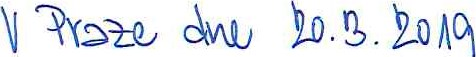 V Praze dne 20.3.2019